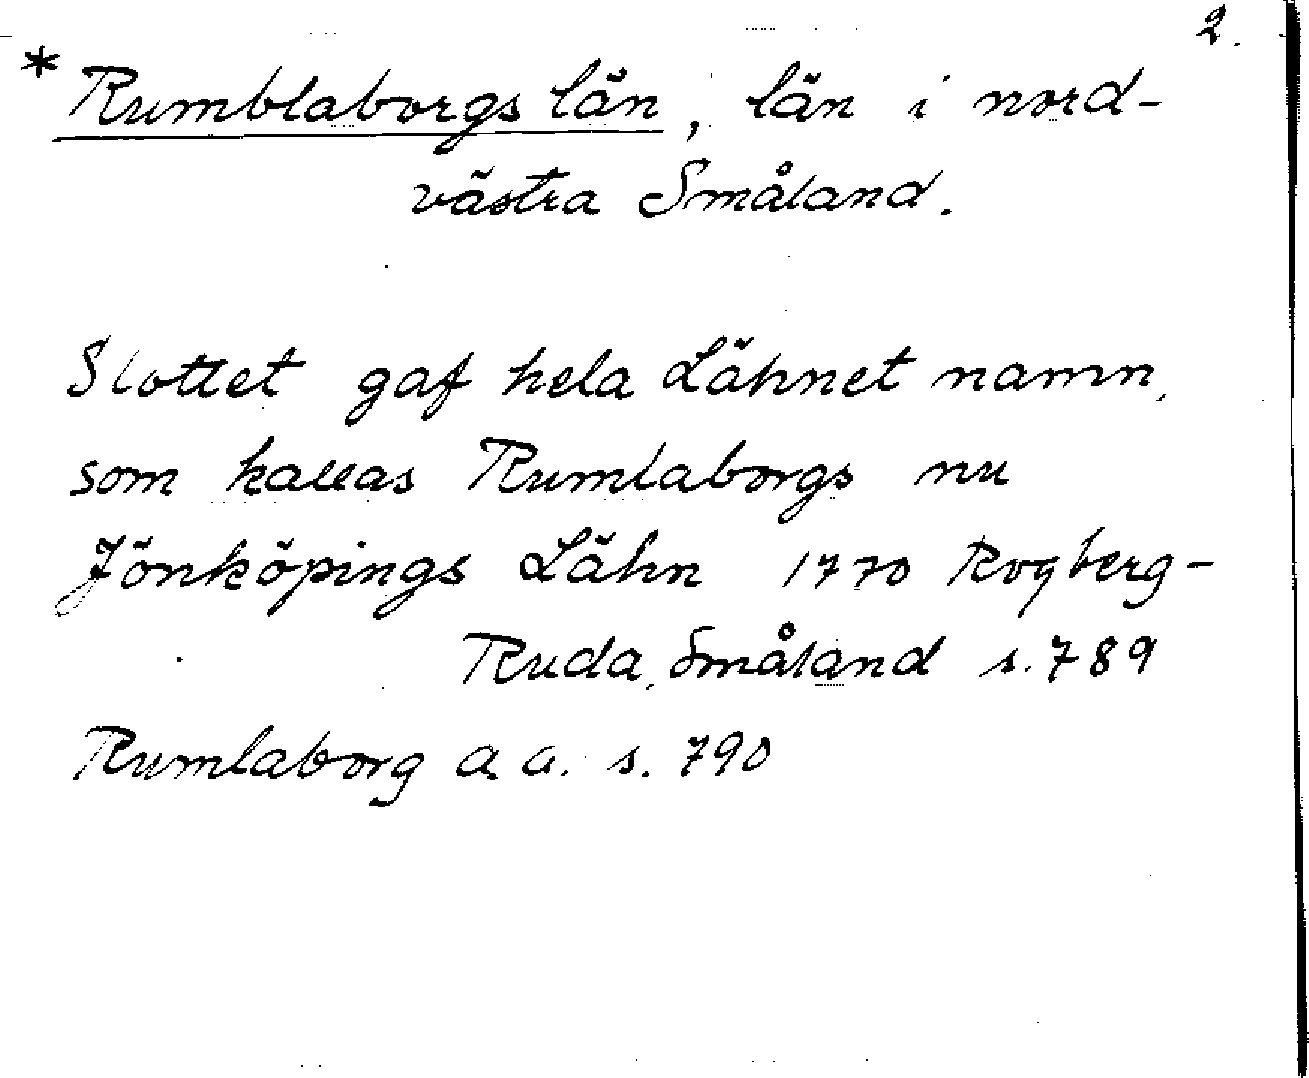 2.
* Rumblaborgs län, län i nord-
västra Småland.
Slottet gaf hela Lähnet namn,
som kallas Rumlaborgs nu
Jönköpings Lähn 1770 Rogberg-
Ruda, Småland s. 789
Rumlaborg a. a. s. 790